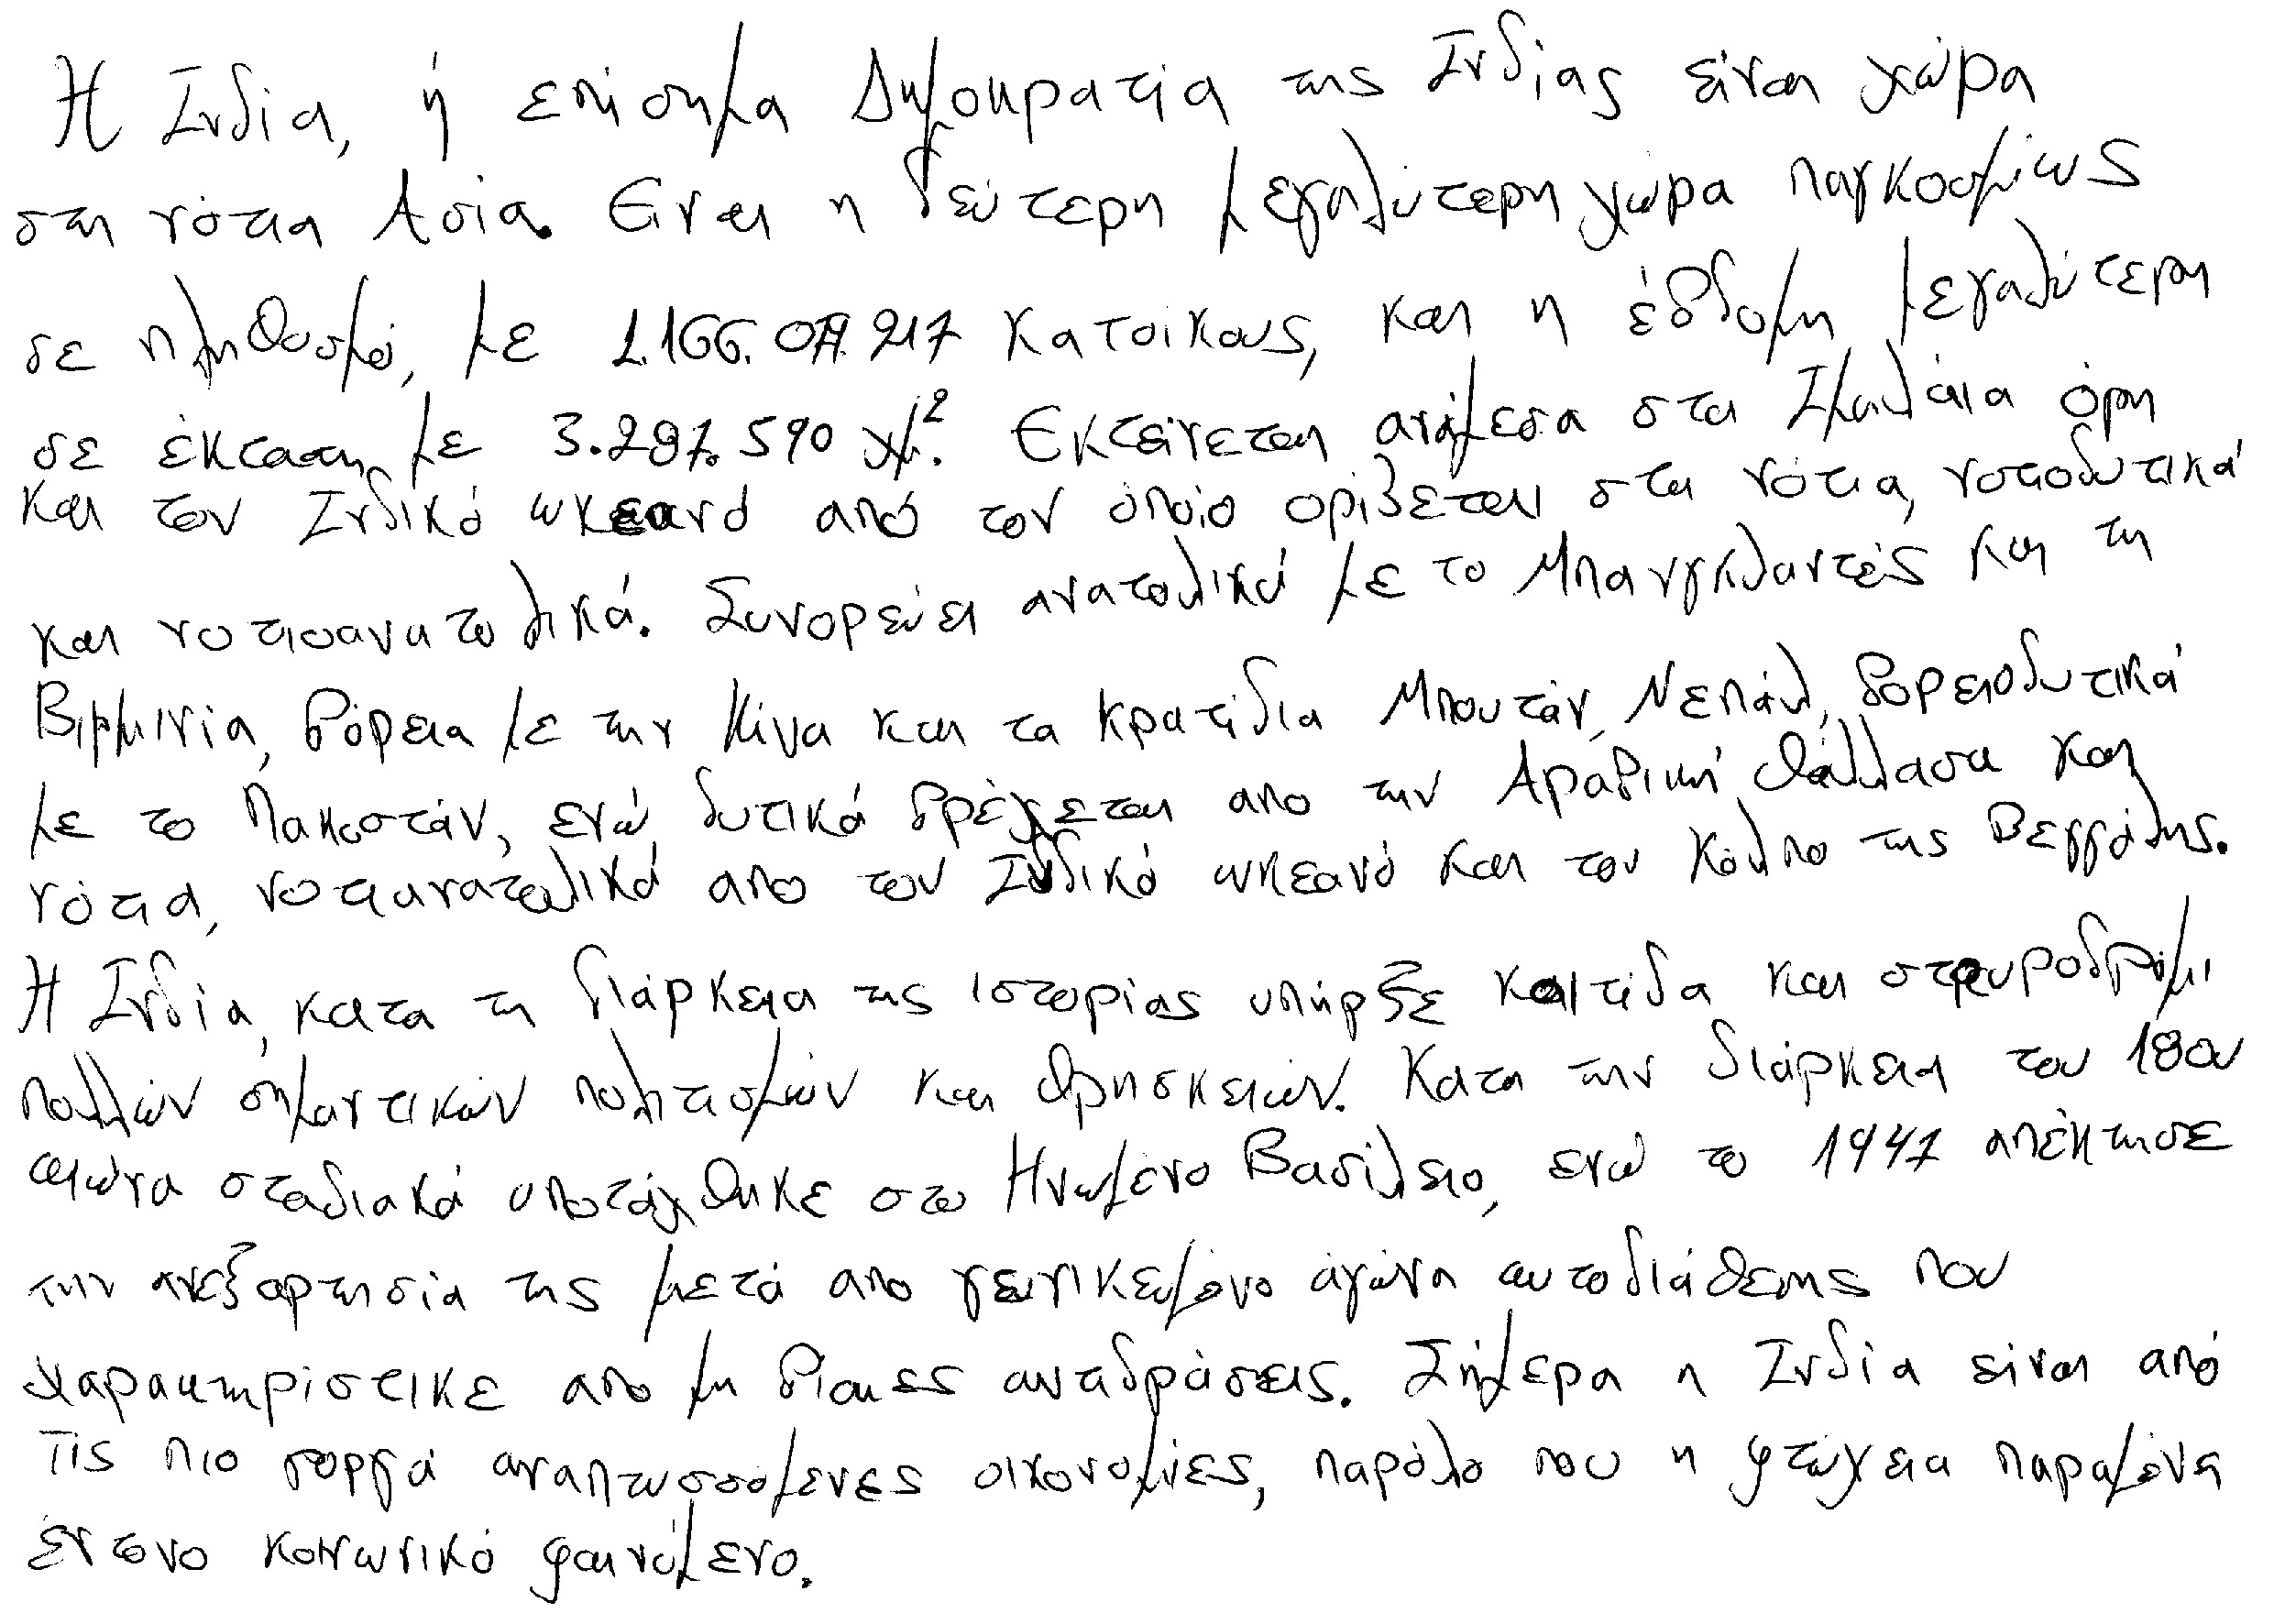 Η Ινδία, ή επίσημα Δημοκρατία της Ινδίας είναι χώρα
στη νότια Ασία. Είναι η δεύτερη μεγαλύτερη χώρα παγκοσμίως
σε πληθυσμό, με 1.166.079.217 κατοίκους, και η έβδομη μεγαλύτερη
σε έκταση με 3.287.590 χμ². Εκτείνεται ανάμεσα στα Ιμαλάια όρη
και τον Ινδικό ωκεανό από τον όποίο ορίζεται στα νότια, νοτιοδυτικά
και νοτιοανατολικά. Συνορεύει ανατολικά με το Μπανγκλαντές και τη
Βιρμανία, βόρεια με την Κίνα και τα κρατίδια Μπουτάν, Νεπάλ, βορειοδυτικά
με το Πακιστάν, ενώ δυτικά βρέχεται απο την Αραβική θάλλασα και
νότια, νοτιανατολικά απο τον Ινδικό ωκεανό και τον Κόλπο της Βεγγάλης.
Η Ινδία, κατα τη διάρκεια της ιστορίας υπήρξε κοιτίδα και σταυροδρόμι
πολλών σημαντικών πολιτισμών και θρησκειών. Κατα την διάρκεια του 18ου
αιώνα σταδιακά υποτάχθηκε στο Ηνωμένο Βασίλειο, ενώ το 1947 απέκτησε
την ανεξαρτησία της μετά απο γενικευμένο αγώνα αυτοδιάθεσης που
χαρακτηρίστικε απο μη βίαιες αντιδράσεις. Σήμερα η Ινδία είναι από
τις πιο γοργά αναπτυσσόμενες οικονομίες, παρόλο που η φτώχεια παραμένει
έντονο κοινωνικό φαινόμενο.